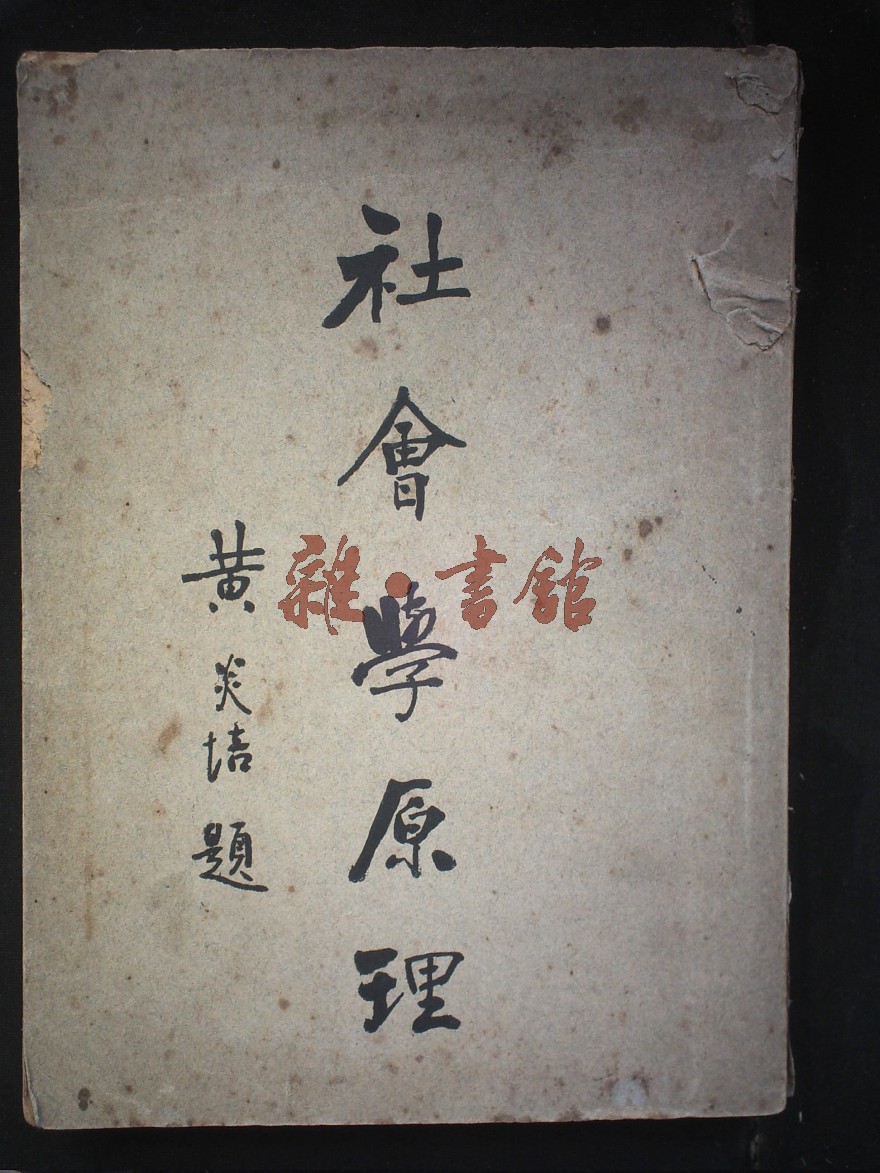 社會學原理
黃炎培題
雜·書館